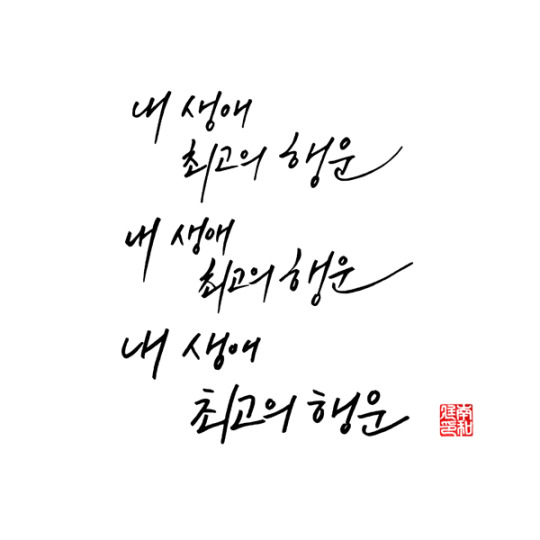 내 생애
최고의 행운
내 생애
최고의 행운
내 생애
최고의 행운